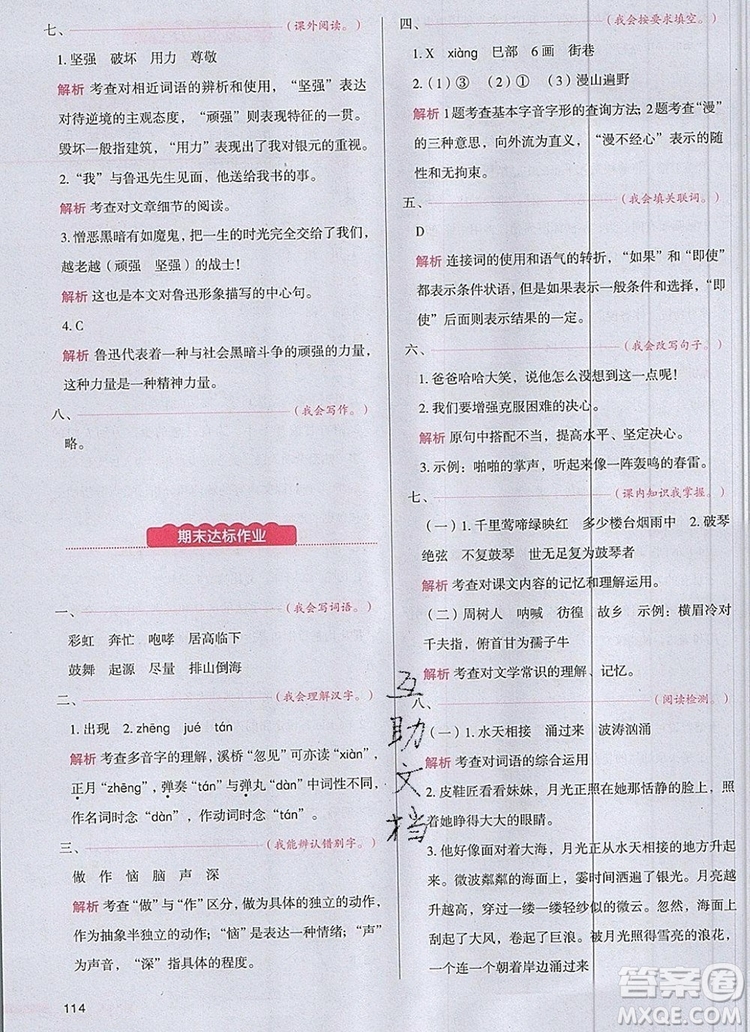 七、（课外阅读。）
1. 坚强　破坏　用力　尊敬
解析 考查对相近词语的辨析和使用，“坚强”表达
对待逆境的主观态度，“顽强”则表现传统的一贯。
毁坏一般指建筑，“用力”写出我对银元的重视。
2. “我”与鲁迅先生见面，他送给我书的事。
解析 考查对文章细节的阅读。
3. 憎恶黑暗有如魔鬼，把一生的时光完全交给了我们，
越老越（顽强　坚强）的战士！
解析 这也是本文对鲁迅形象描写的中心句。
4. C
解析 鲁迅代表着一种与社会黑暗斗争的顽强的力量，
这种力量是一种精神力量。
八、（我会写作。）
略。
期末达标作业
一、（我会写词语。）
彩虹　奔忙　咆哮　居高临下
鼓舞　起源　尽量　排山倒海
二、（我会理解汉字。）
1. 出现　2. zhēng　jué　tán
解析 考查多音字的理解，溪桥“忽见”可亦读“xiàn”，
正月“zhēng”，弹奏“tán”与弹丸“dàn”中词性不同，
作名词时念“dàn”，作动词时念“tán”。
三、（我能辨认错别字。）
做　作　恼　脑　声　深
解析 考查“做”与“作”区分，做为具体的独立的动作，
作为抽象半独立的动作，“恼”是表达一种情绪；“声”
为声音，“深”指具体的程度。
114
四、（我会按要求填空。）
1. X　xiàng　巳部　6画　街巷
2.（1）③　（2）①　（3）漫山遍野
解析 1题考查基本字音字形的查询方法；2题考查“漫”
的三种意思，向外流为满溢，“漫不经心”表示的是随意
和无拘束。
五、（我会填关联词。）
D
解析 连接词的使用和语气的转折，“如果”和“即使”
都表示条件状语，但是表示一般条件和选择，“即
使”后面表示结果的一定。
六、（我会改写句子。）
1. 爸爸哈哈大笑，说他怎么没想到这一点呢！
2. 我们要增强克服困难的决心。
解析 原句中搭配不当，提高水平、坚定决心。
3. 示例：啪啪的掌声，好像是一阵轰鸣的春雷。
七、（课内知识我掌握。）
（一）1. 千里莺啼绿映红　多少楼台烟雨中　2. 破琴
绝弦　不复鼓琴　世无足复为鼓琴者
解析 考查对课文内容的记忆和理解运用。
（二）周树人　呐喊　彷徨　故乡　示例：横眉冷对
千夫指，俯首甘为孺子牛
解析 考查对文学常识的理解、记忆。
八、（阅读检测。）
（一）1. 水天相接　涌过来　波涛汹涌
解析 考查对词语的综合运用
2. 皮鞋匠看看妹妹，月光正照在她那恬静的脸上，照
着她睁得大大的眼睛。
3. 他好像面对着大海，月光正从水天相接的地方升起
来。微波粼粼的海面上，霎时间洒遍了银光。月亮越
升越高，穿过一缕一缕轻纱似的微云。忽然，海面上
刮起了大风，卷起了巨浪。被月光照得雪亮的浪花，
一个连一个朝着岸边涌过来
互助文档
答案圈
MXQE.COM